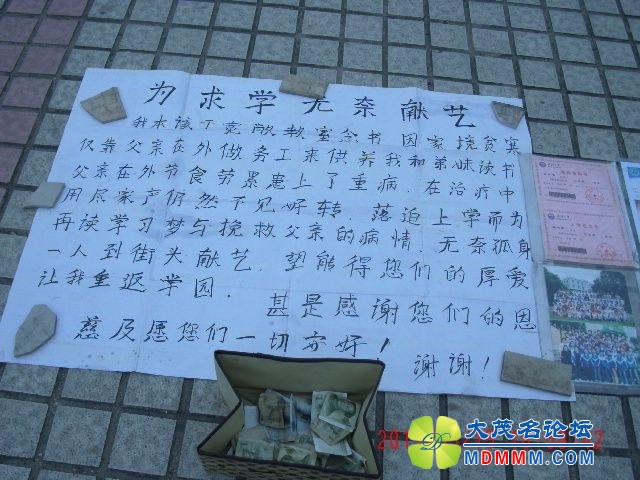 为求学无奈献艺
我本该于宽敞教室念书 因家境贫寒
仅靠父亲在外做务工来供养我和弟妹读书
父亲在外节食劳累患上了重病.在治疗中
用尽家产仍然不见好转 落迫上学而为
再读学习梦与挽救父亲的病情.无奈孤身
一人到街头献艺.望能得您们的厚爱
让我重返学园.
甚是感谢您们的恩
慈及愿您们一切安好!
谢谢!
大茂名论坛
MDMMM.COM